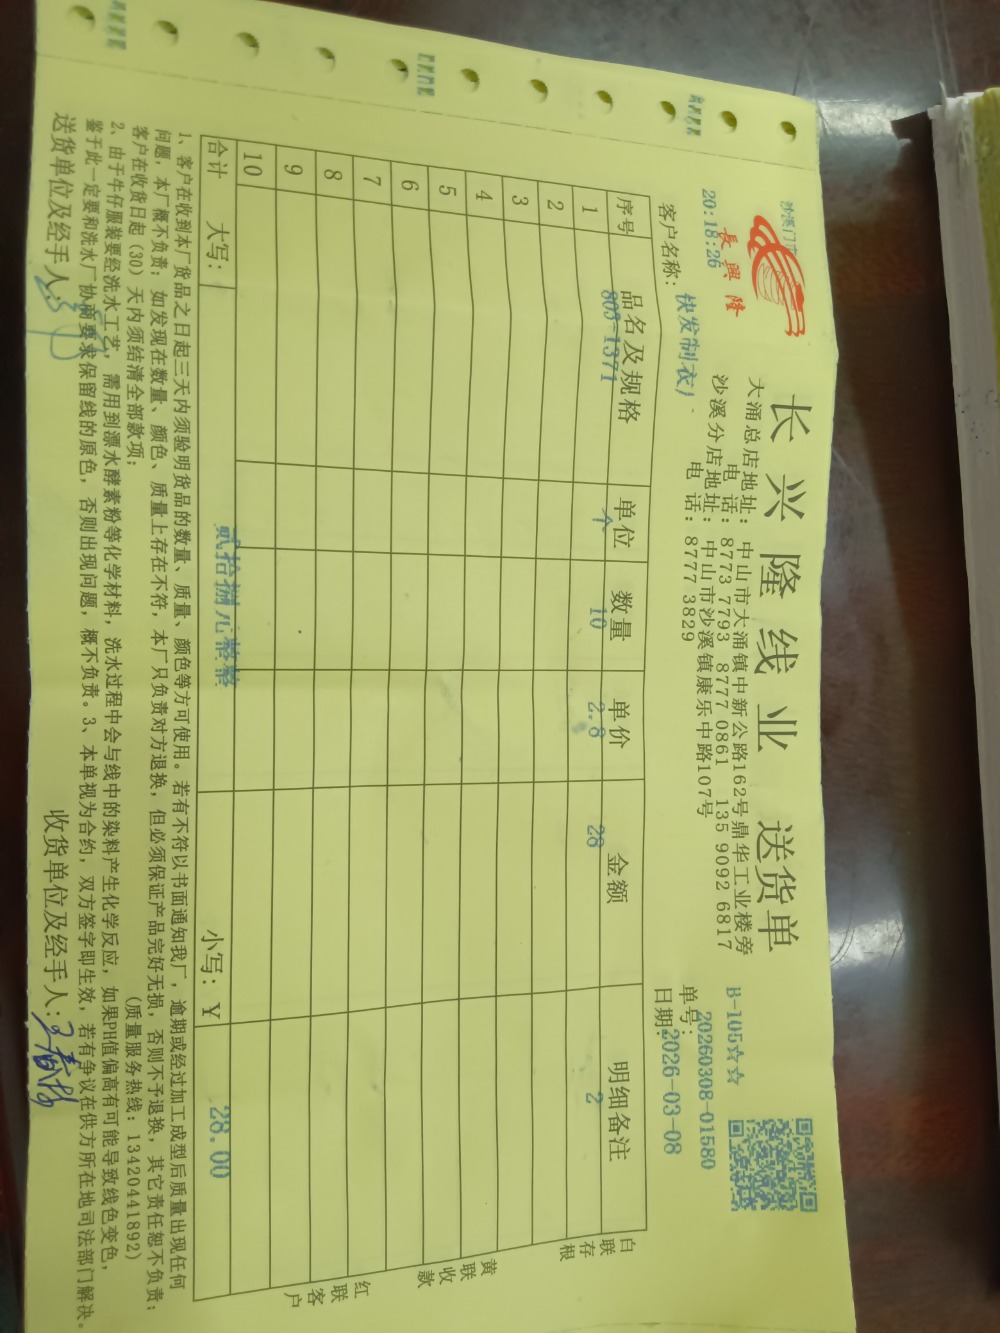 沙溪门市
長興隆
20:18:26
长兴隆线业 送货单
大涌总店地址：中山市大涌镇中新公路162号鼎华工业楼旁
电 话：8773 7793 8777 0861 135 9092 6817
沙溪分店地址：中山市沙溪镇康乐中路107号
电 话：8777 3829
B-105☆☆
单号：20260308-01580
客户名称：快发制衣）
日期：2026-03-08
序号 品名及规格 单位 数量 单价 金额 明细备注
1 803-1371 个 10 2.8 28 2
2
3
4
5
6
7
8
9
10
合计 大写：贰拾捌元整整 小写：¥ 28.00
白联存根
黄联收款
红联客户
1、客户在收到本厂货品之日起三天内须验明货品的数量、质量、颜色等方可使用。若有不符以书面通知我厂，逾期或经过加工成型后质量出现任何
问题，本厂概不负责；如发现在数量、颜色、质量上存在不符，本厂只负责对方退换，但必须保证产品完好无损，否则不予退换，其它责任恕不负责；
客户在收货日起（30）天内须结清全部款项；
（质量服务热线：13420441892）
2、由于牛仔服装要经洗水工艺，需用到漂水酵素粉等化学材料，洗水过程中会与线中的染料产生化学反应，如果PH值偏高有可能导致线色变色，
鉴于此一定要和洗水厂协商要求保留线的原色，否则出现问题，概不负责。3、本单视为合约，双方签字即生效，若有争议在供方所在地司法部门解决。
送货单位及经手人：
收货单位及经手人：